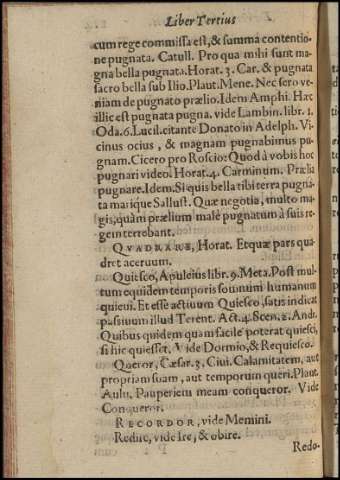 Liber Tertius
cum rege commissa est, & summa contentio-
ne pugnata. Catull. Pro qua mihi sunt ma-
gna bella pugnata. Horat. 3. Car. & pugnata
sacro bella sub Ilio. Plaut. Mene. Nec sero ve-
niam de pugnato prælio. Idem Amphi. Hæc
illic est pugnata pugna. vide Lambin. libr. 1.
Oda. 6. Lucil. citante Donato in Adelph. Vi-
cinus ocius, & magnam pugnabimus pu-
gnam. Cicero pro Roscio: Quod à vobis hoc
pugnari video. Horat. 4. Carminum. Prælia
pugnare. Idem. Si quis bella tibi terra pugna-
ta marique Sallust. Quæ negotia, multo ma-
gis, quàm prælium malè pugnatum à suis re-
gem terrebant.
QVADRARE, Horat. Et quæ pars qua-
dret aceruum.
Quiesco, Apuleius libr. 9. Meta. Post mul-
tum equidem temporis somnum humanum
quieui. Et esse actiuum Quiesco, satis indicat
passiuum illud Terent. Act. 4. Scen. 2. Andr.
Quibus quidem quam facilè poterat quiesci,
si hic quiesset. Vide Dormio, & Requiesco.
Queror, Cæsar. 3. Ciui. Calamitatem, aut
propriam suam, aut temporum queri. Plaut.
Aulu. Pauperiem meam conqueror. Vide
Conqueror.
RECORDOR, vide Memini.
Redire, vide Ire, & obire.
Redo-